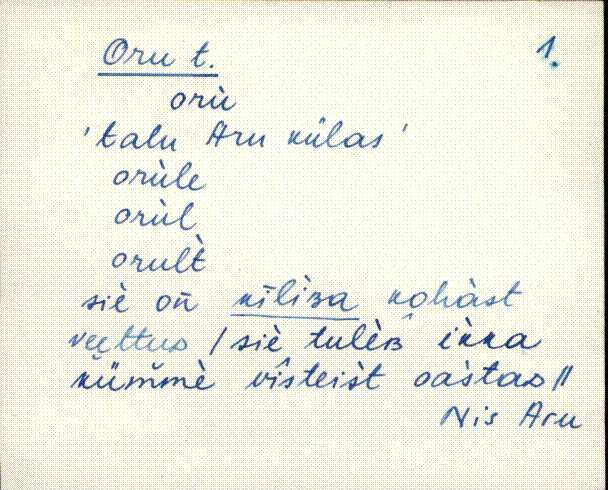 Oru t. 1.
orù
'talu Aru külas'
orùle
orùl
orult̀
siè on̄ kīliʙa kohàst
veettus / siè tulèʙ ikka
küm̆mè vîsteist oàstao //
Nis Aru